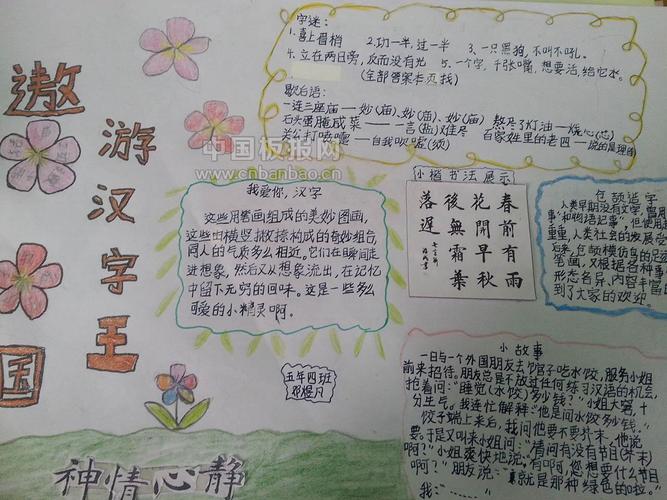 遨游汉字王国
字迷：
1.喜上眉梢 2.功一半,过一半 3.一只黑狗,不叫不吼。
4.立在两日旁,反而没有光 5.一个字,千张嘴,想要活,给它水。
(全部答案本页找)
歇台语：
一连三座庙——妙(庙)、妙(庙)、妙(庙) 熬尽了灯油——烧心(芯)
石头蛋腌咸菜——一言(盐)难尽 百家姓里的老四——说的是理
关公打喷嚏——自我吹嘘(须)
中国板报网
www.cnbanbao.cn
我爱你,汉字
这些用笔画组成的美妙图画,
这些由横竖撇捺构成的奇妙组合,
同人的气质多么相近。它们在瞬间走
进想象,然后又从想象流出,在记忆
中留下无穷的回味。这是一些多么
可爱的小精灵啊。
小楷书法展示
春前有雨
花開早秋
後無霜葉
落遲
包颉造字
人类早期没有文字,曾用
事"和物语记事",但使用
重重,人类社会的发展
后来,包颉模仿鸟的足迹
笔画,又根据各种事
形态各异、内容丰富的
到了大家的欢迎
五年四班
小故事
一日与一个外国朋友去馆子吃水饺,服务小姐
前来招待。朋友总是不放过任何练习汉语的机会,
抢着问:"睡觉(水饺)多少钱?"小姐大窘,十
分生气。我连忙解释:"他是问水饺多少钱。"
饺子端上来后,我问他要不要芥末,他说
要。于是又叫来小姐问:"请问有没有节目(芥末)
啊?"小姐爽快地说:"有啊,您想要什么节目
啊?"朋友说:"就是那种绿色的啦。"
我:……
神情心静